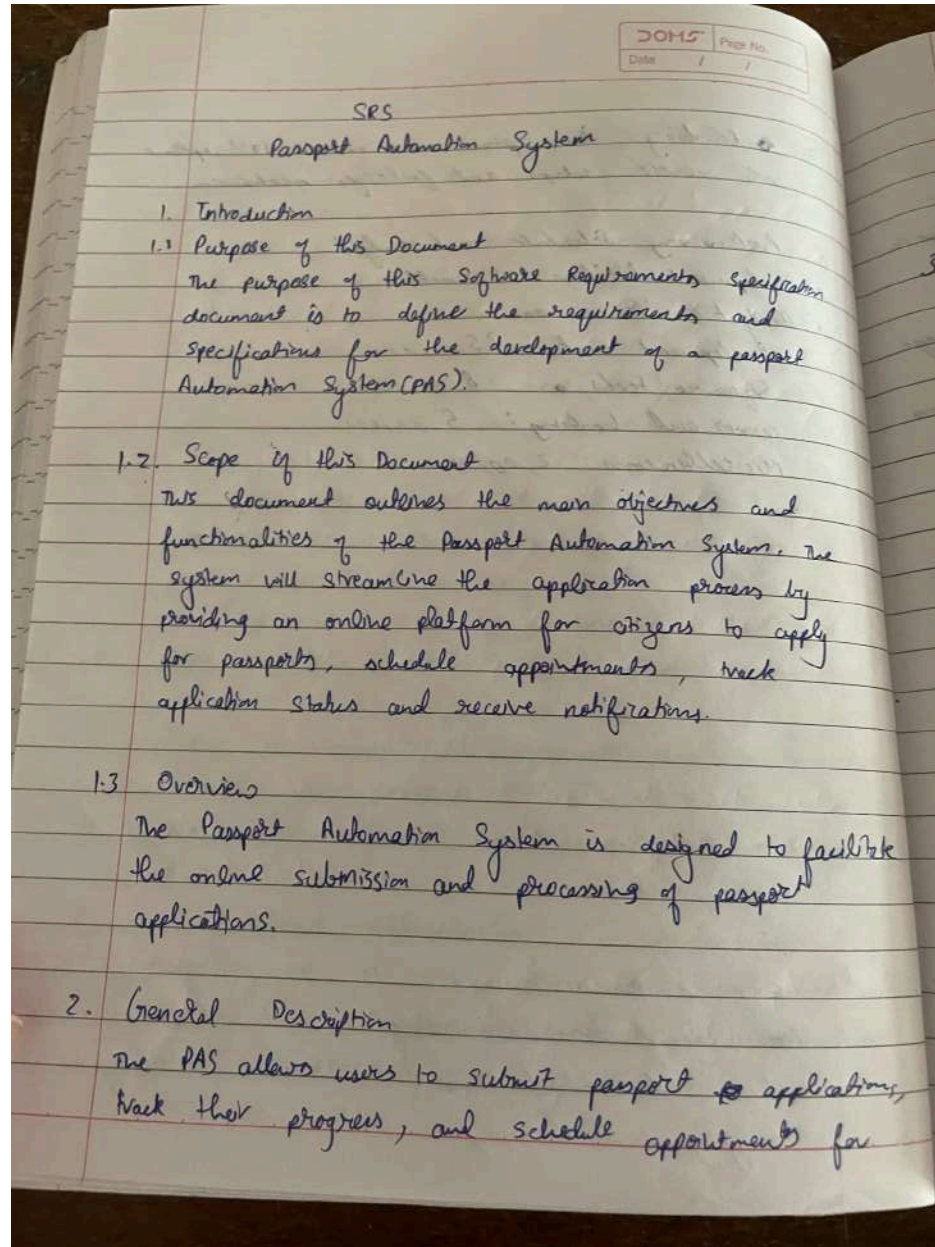 DOMS
Page No.
Date / /
SRS
Passport Automation System
1. Introduction
1.1 Purpose of this Document
The purpose of this Software Requirements Specification
document is to define the requirements and
specifications for the development of a passport
Automation System (PAS).
1.2. Scope of this Document
This document outlines the main objectives and
functionalities of the Passport Automation System. The
system will streamline the application process by
providing an online platform for citizens to apply
for passports, schedule appointments, track
application status and receive notifications.
1.3 Overview
The Passport Automation System is designed to facilitate
the online submission and processing of passport
applications.
2. General Description
The PAS allows users to submit passport applications,
track their progress, and schedule appointments for